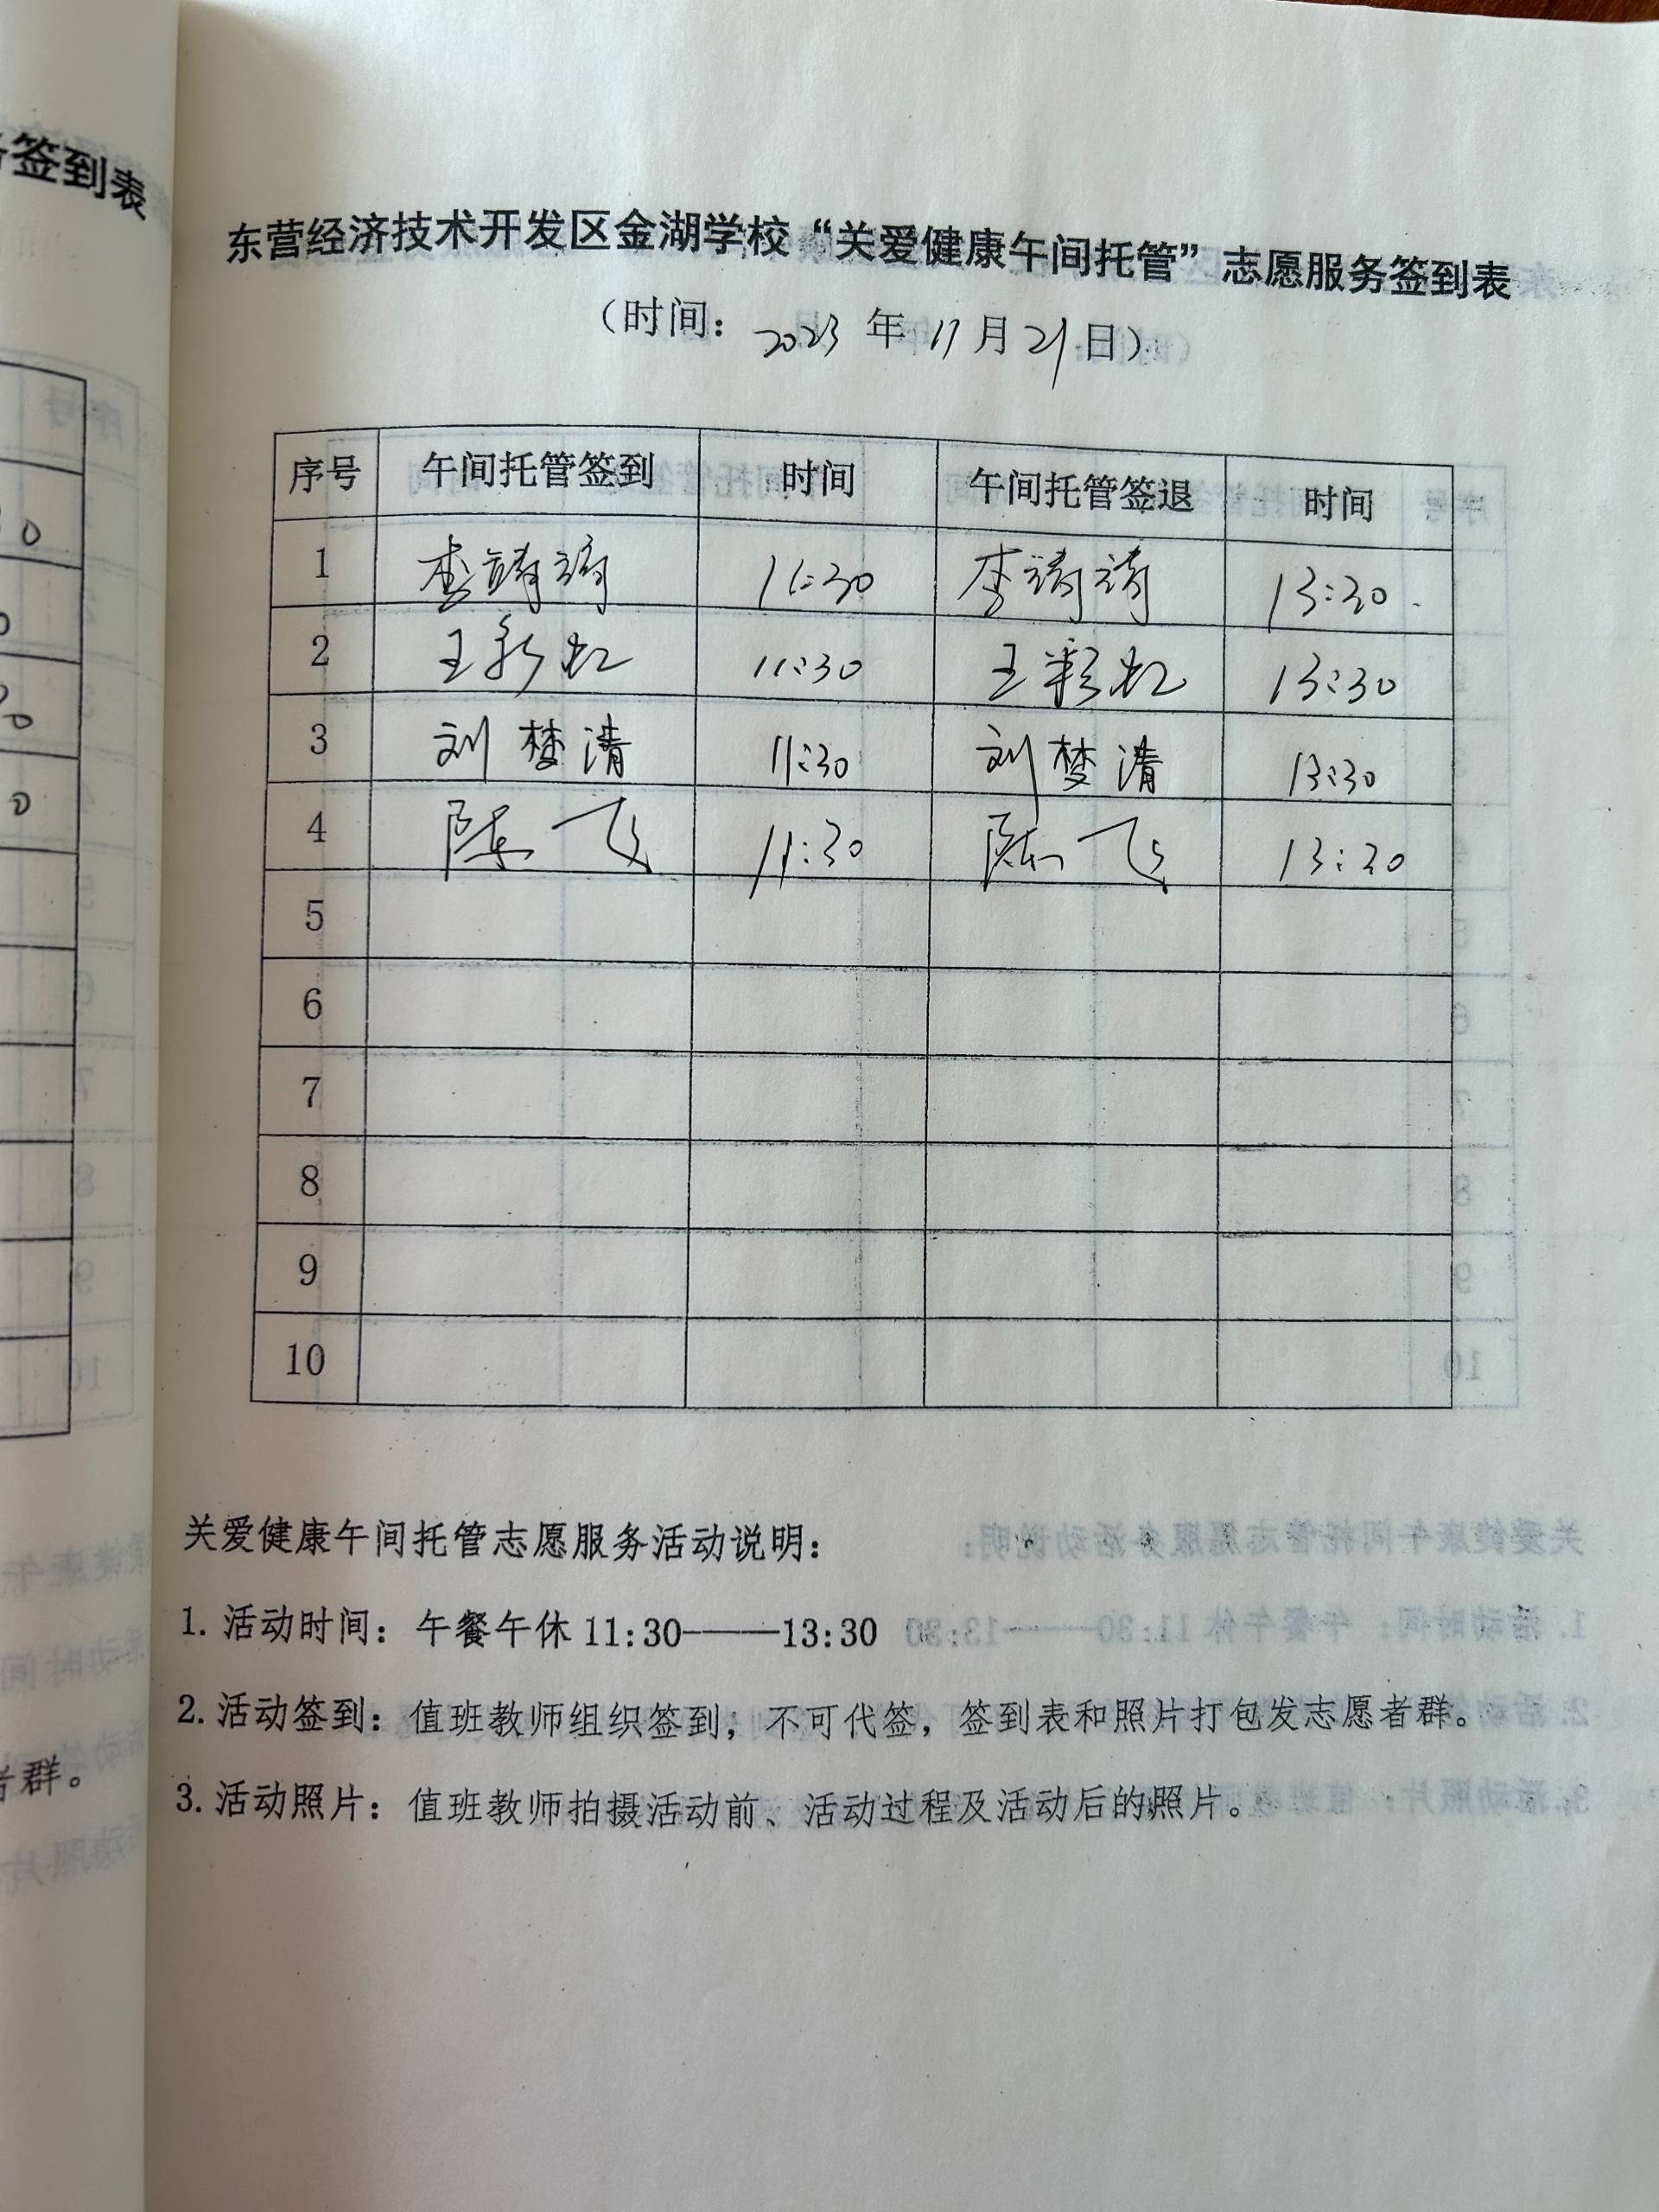 签到表
东营经济技术开发区金湖学校“关爱健康午间托管”志愿服务签到表
（时间：2023年11月21日）
序号 午间托管签到 时间 午间托管签退 时间
1 李 11:30 李 13:30
2 王彩虹 11:30 王彩虹 13:30
3 刘梦清 11:30 刘梦清 13:30
4 陈飞 11:30 陈飞 13:30
5
6
7
8
9
10
关爱健康午间托管志愿服务活动说明：
1. 活动时间：午餐午休 11:30——13:30
2. 活动签到：值班教师组织签到，不可代签，签到表和照片打包发志愿者群。
者群。
3. 活动照片：值班教师拍摄活动前、活动过程及活动后的照片。